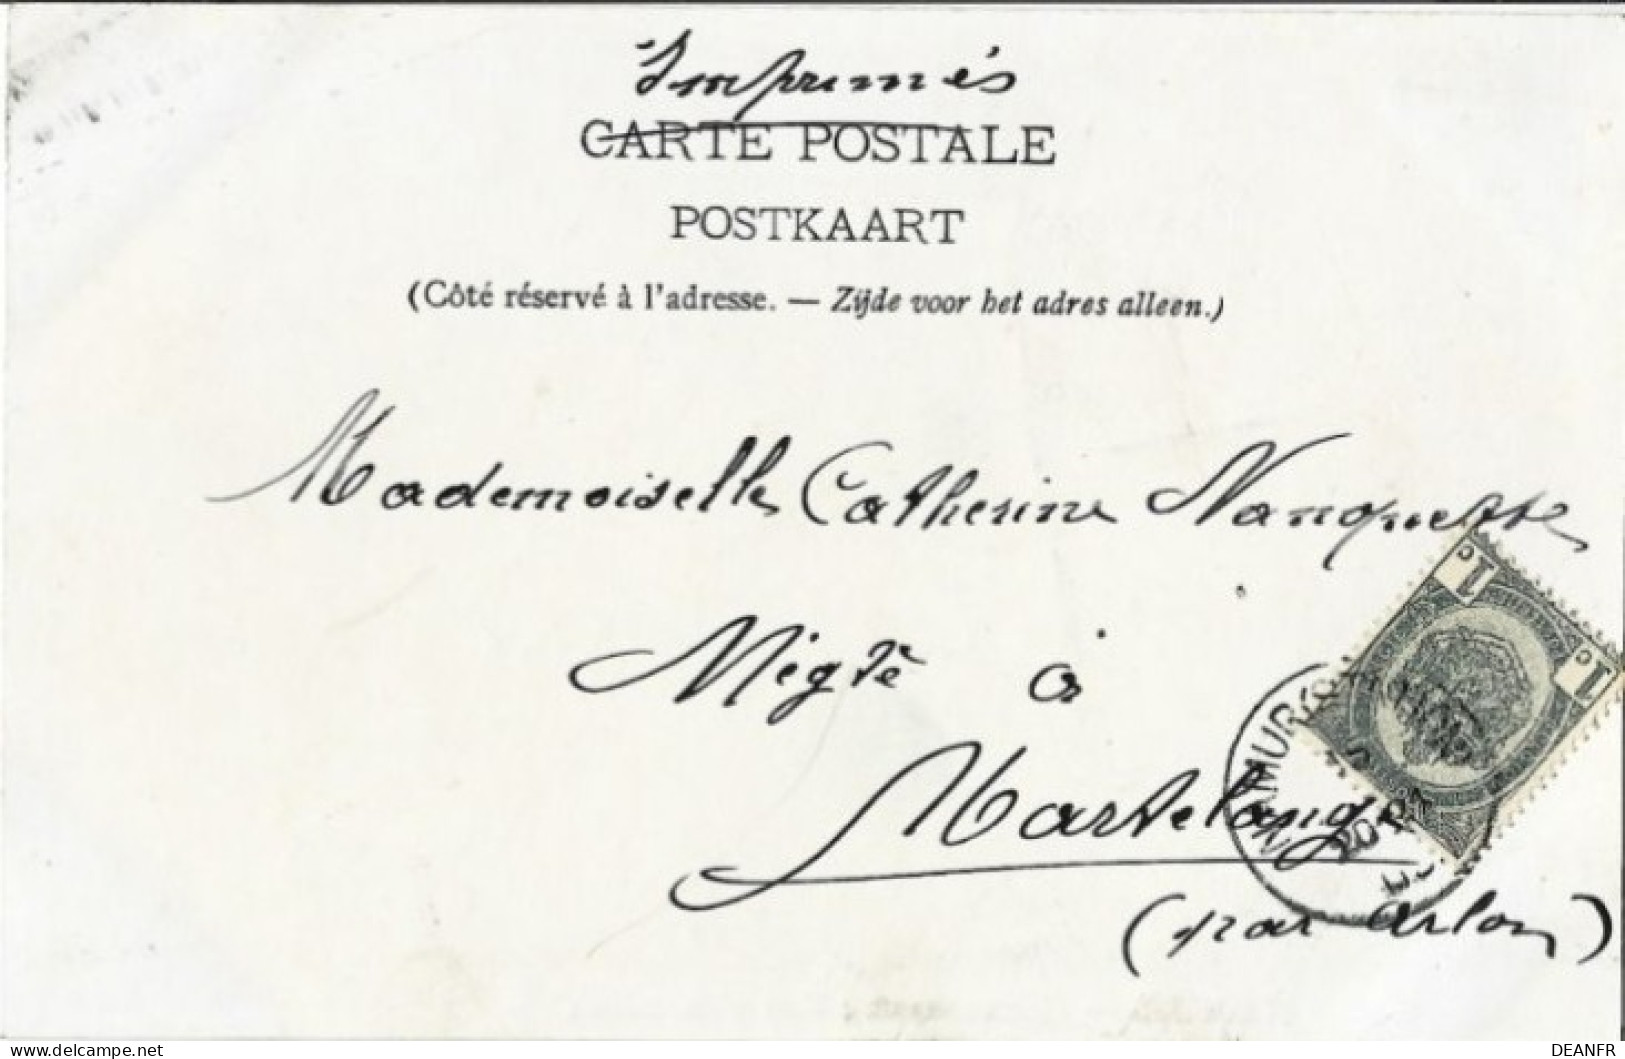 Imprimés
CARTE POSTALE
POSTKAART
(Côté réservé à l'adresse. — Zijde voor het adres alleen.)
Mademoiselle Catherine Nanquette
Négte à
Martelange
(par Arlon)
1c
1c
NAMUR
delcampe.net
DEANFR